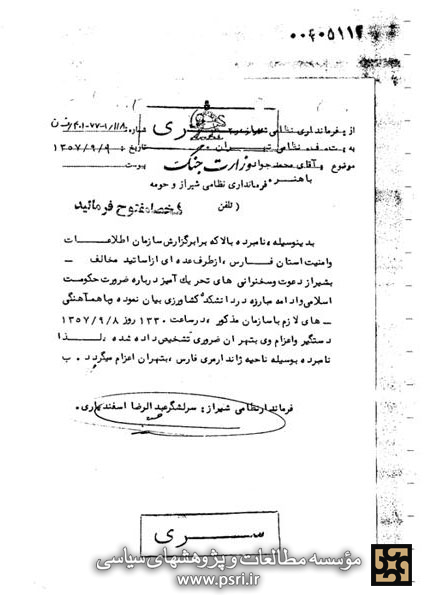 ۰۰۴۰۵۱۱۲
از : فرمانداری نظامی شیراز
سری
شماره
به : فرماندار نظامی تهران
وزارت جنگ
تاریخ : ۱۳۵۷/۹/۹
موضوع : آقای محمد جواد باهنر
پیوست
فرمانداری نظامی شیراز و حومه
(تلفن )
شخصا مفتوح فرمائید
بدینوسیله ، نامبرده بالا که برابر گزارش سازمان اطلاعات
وامنیت استان فارس ، ازطرف عده ای از اساتید مخالف -
بشیراز دعوت وسخنرانی های تحریک آمیز درباره ضرورت حکومت
اسلامی وادامه مبارزه دردانشکده کشاورزی بیان نموده وباهماهنگی
- های لازم باسازمان مذکور ، درساعت ۱۳۳۰ روز ۱۳۵۷/۹/۸
دستگیر واعزام وی بتهران ضروری تشخیص داده شده ، لذا
نامبرده بوسیله ناحیه ژاندارمری فارس ، بتهران اعزام میگردد . ب
فرماندار نظامی شیراز : سرلشگر عبدالرضا اسفندیاری .
سری
مؤسسه مطالعات و پژوهشهای سیاسی
www.psri.ir